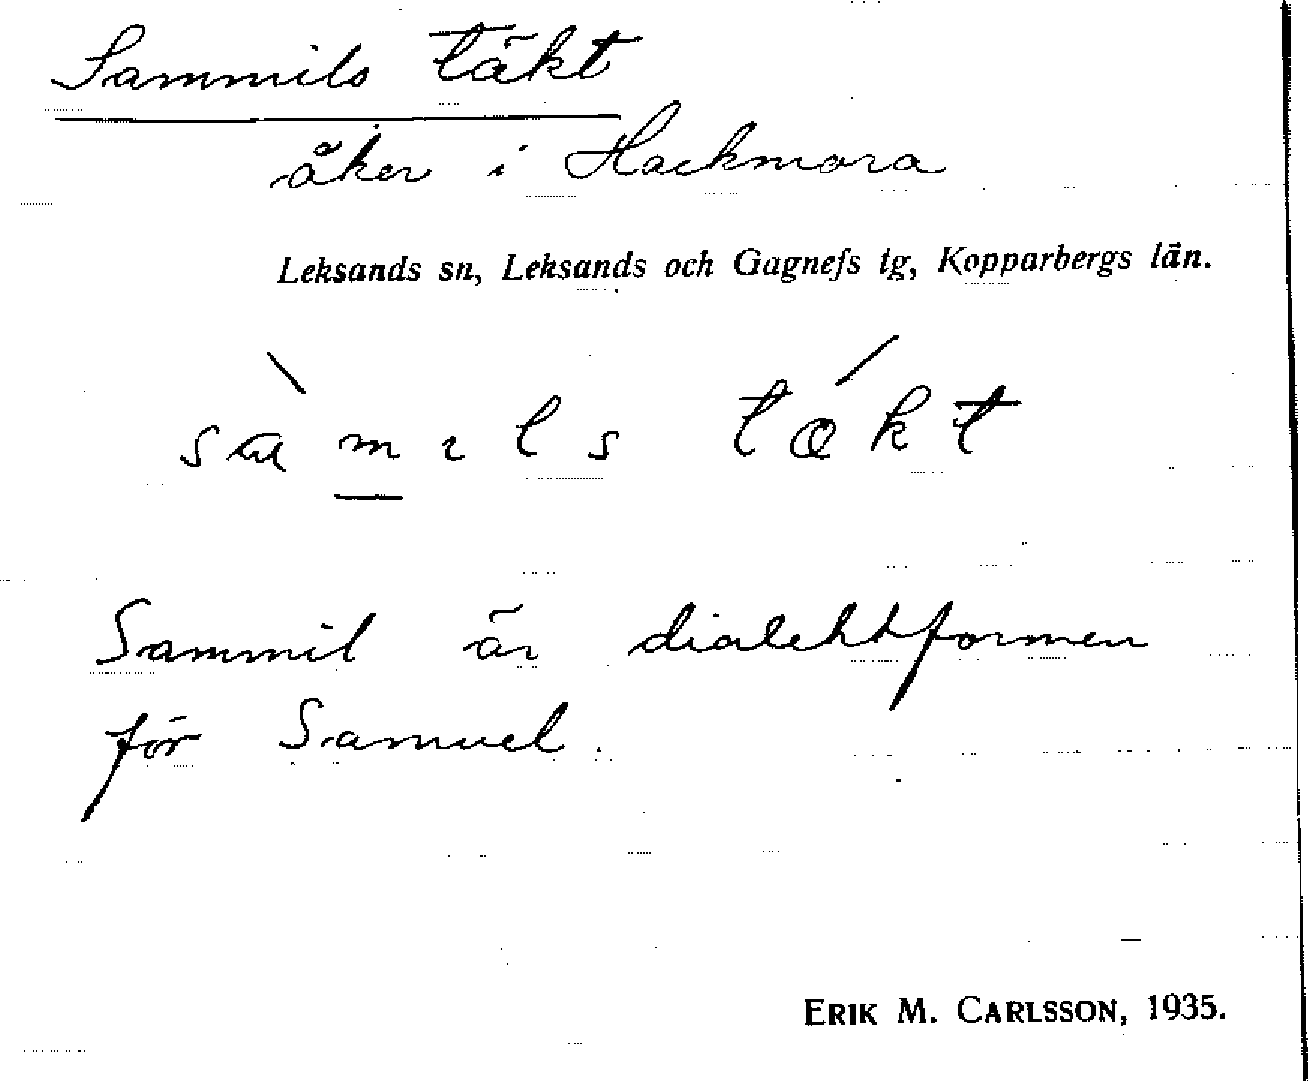 Sammils täkt
åker i Hackmora
Leksands sn, Leksands och Gagnefs tg, Kopparbergs län.
sàmıls tǽkt
Sammil är dialektformen
för Samuel.
ERIK M. CARLSSON, 1935.